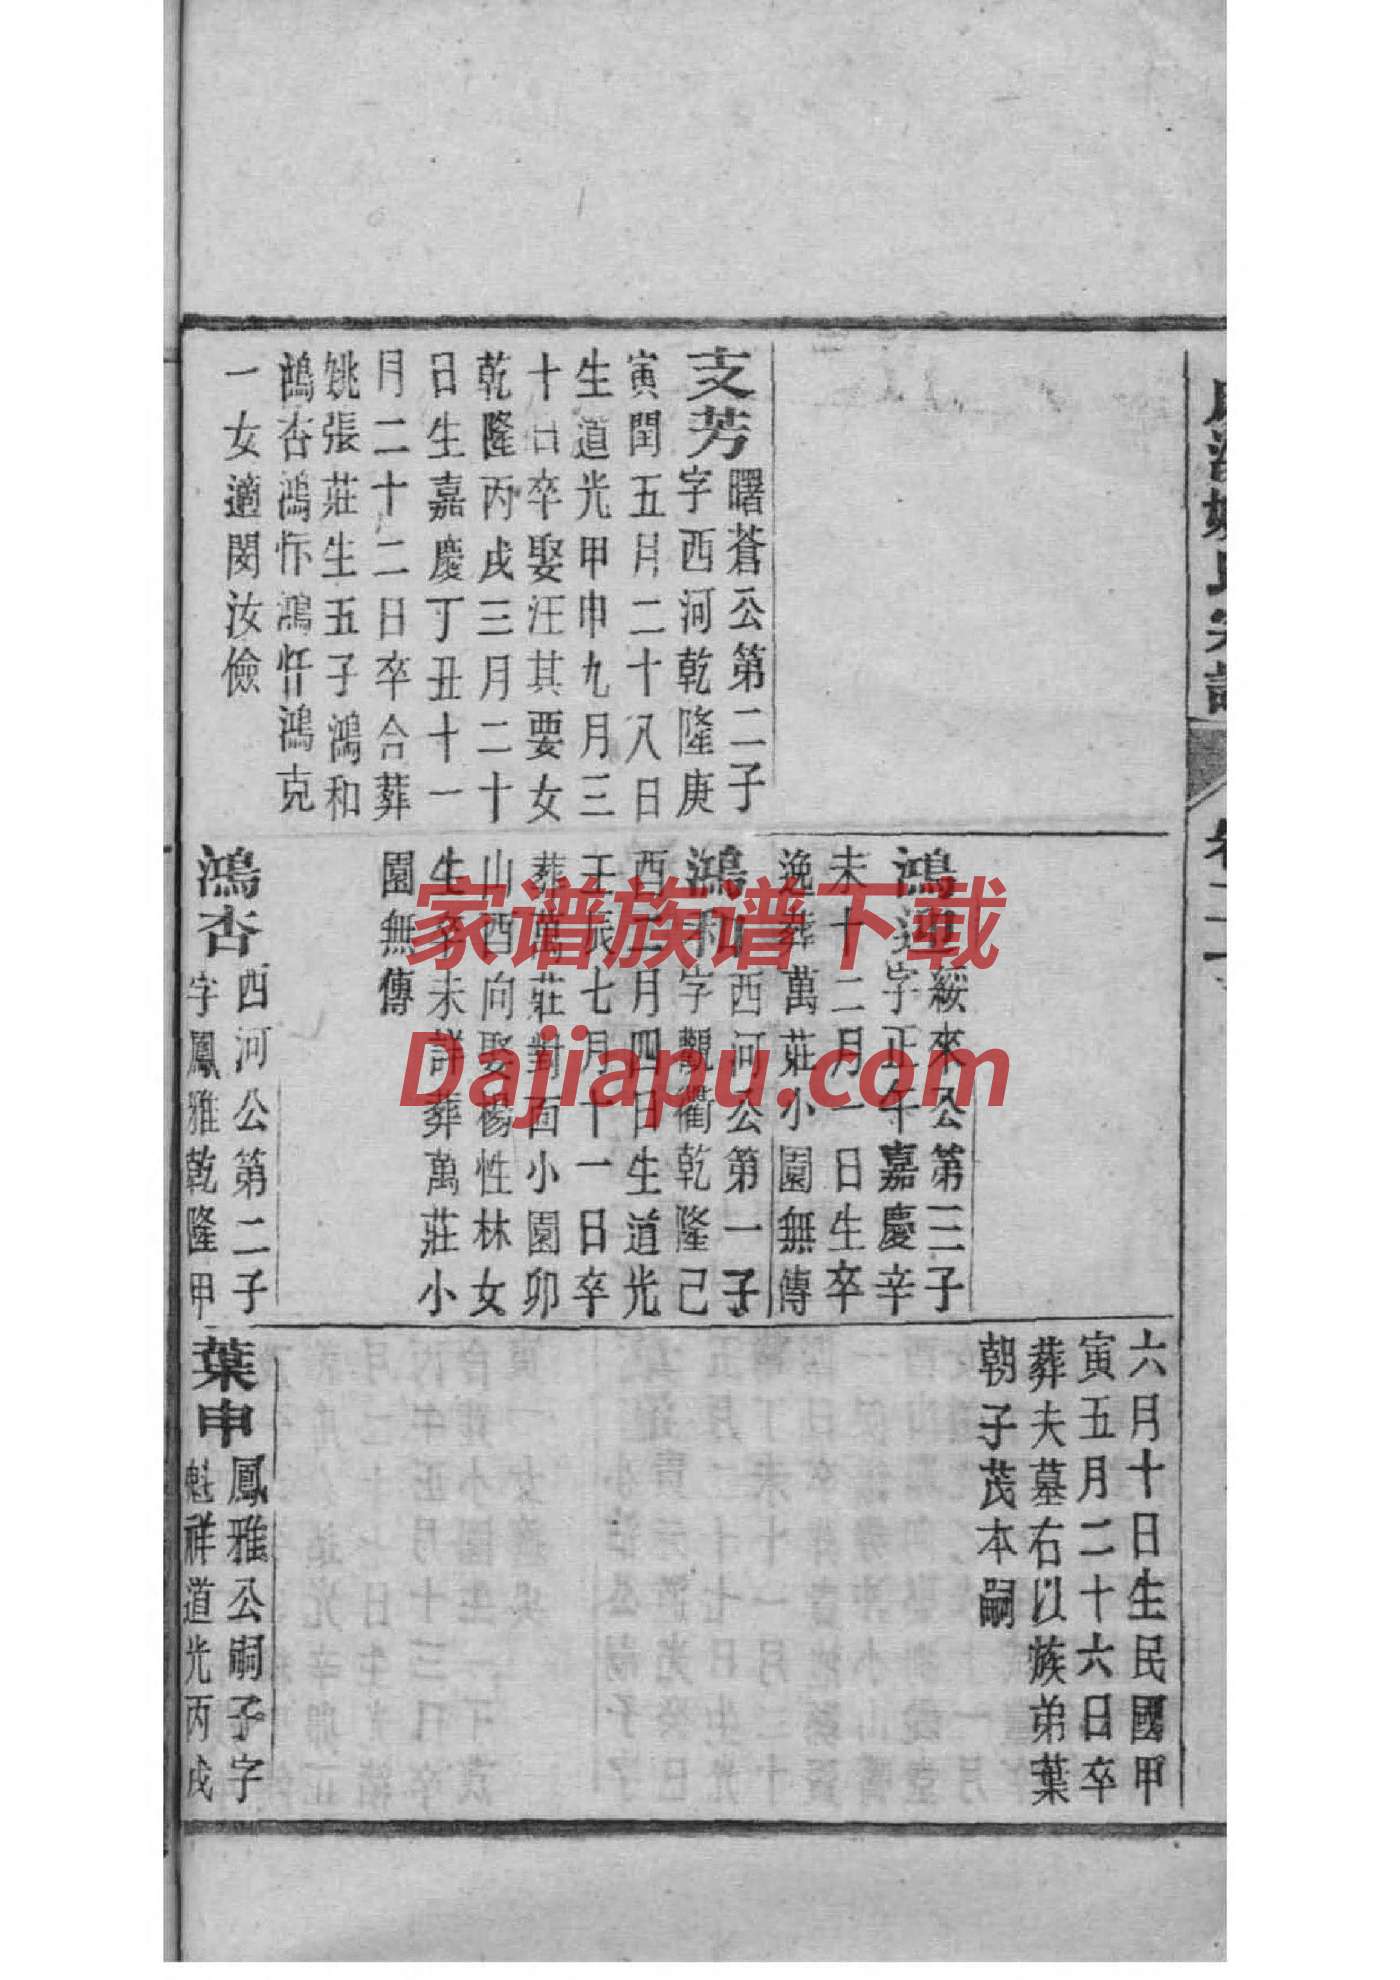 支芳
曙蒼公第二子
字西河乾隆庚
寅閏五月二十八日
生道光甲申九月三
十日卒娶汪其要女
乾隆丙戌三月二十
日生嘉慶丁丑十一
月二十二日卒合葬
姚張莊生五子鴻和
鴻杏鴻怀鴻忏鴻克
一女適閔汝儉
鴻運
綏來公第三子
字正午嘉慶辛
未十二月一日生卒
逸葬萬莊小園無傳
鴻和
西河公第一子
字觀衢乾隆己
酉二月四日生道光
壬辰七月十一日卒
葬萬莊對面小園卯
山酉向娶楊性林女
生卒未詳葬萬莊小
園無傳
鴻杏
西河公第二子
字鳳雅乾隆甲
六月十日生民國甲
寅五月二十六日卒
葬夫墓右以族弟葉
朝子茂本嗣
葉申
鳳雅公嗣子字
魁祥道光丙戌
家谱族谱下载
Dajiapu.com